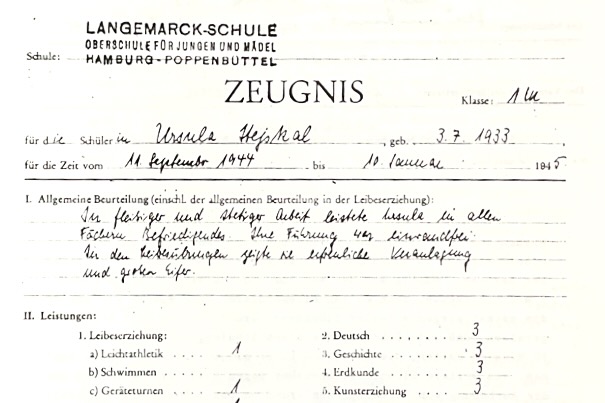 LANGEMARCK-SCHULE
OBERSCHULE FÜR JUNGEN UND MÄDEL
Schule: HAMBURG-POPPENBÜTTEL
ZEUGNIS
Klasse: 1
für die Schülerin Ursula Hejskal, geb. 3.7.1933,
für die Zeit vom 11. September 1944 bis 10. Januar 1945
I. Allgemeine Beurteilung (einschl. der allgemeinen Beurteilung in der Leibeserziehung):
In fleißiger und stetiger Arbeit leistete Ursula in allen
Fächern Befriedigendes. Ihre Führung war einwandfrei.
In den Leibesübungen zeigte sie erfreuliche Veranlagung
und großen Eifer.
II. Leistungen:
1. Leibeserziehung: 2. Deutsch ....... 3
a) Leichtathletik .... 1 3. Geschichte ..... 3
b) Schwimmen .... 4. Erdkunde ..... 3
c) Geräteturnen .... 1 5. Kunsterziehung .... 3